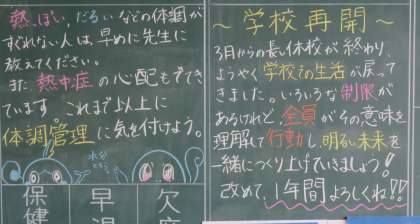 熱っぽい、だるいなどの体調が
すぐれない人は、早めに先生に
教えてください。
また、熱中症の心配もでてき
ています。これまで以上に
体調管理に気を付けよう。
水分
保健
早退
欠席
～学校再開～
3月からの長い休校が終わり、
ようやく学校での生活が戻って
きました。いろいろな制限が
あるけれど、全員がその意味を
理解して行動し、明るい未来を
一緒につくり上げていきましょう!
改めて、1年間よろしくね!!